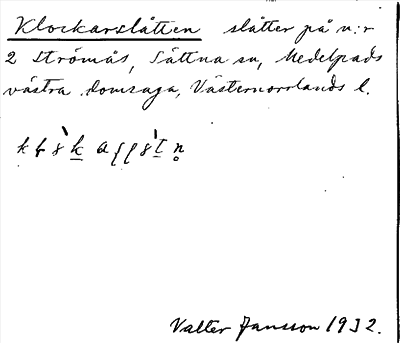 Klockarslåtten slåtter på n:r
2 Strömås, Sättna sn, Medelpads
västra domsaga, Västernorrlands l.
Valter Jansson 1932.